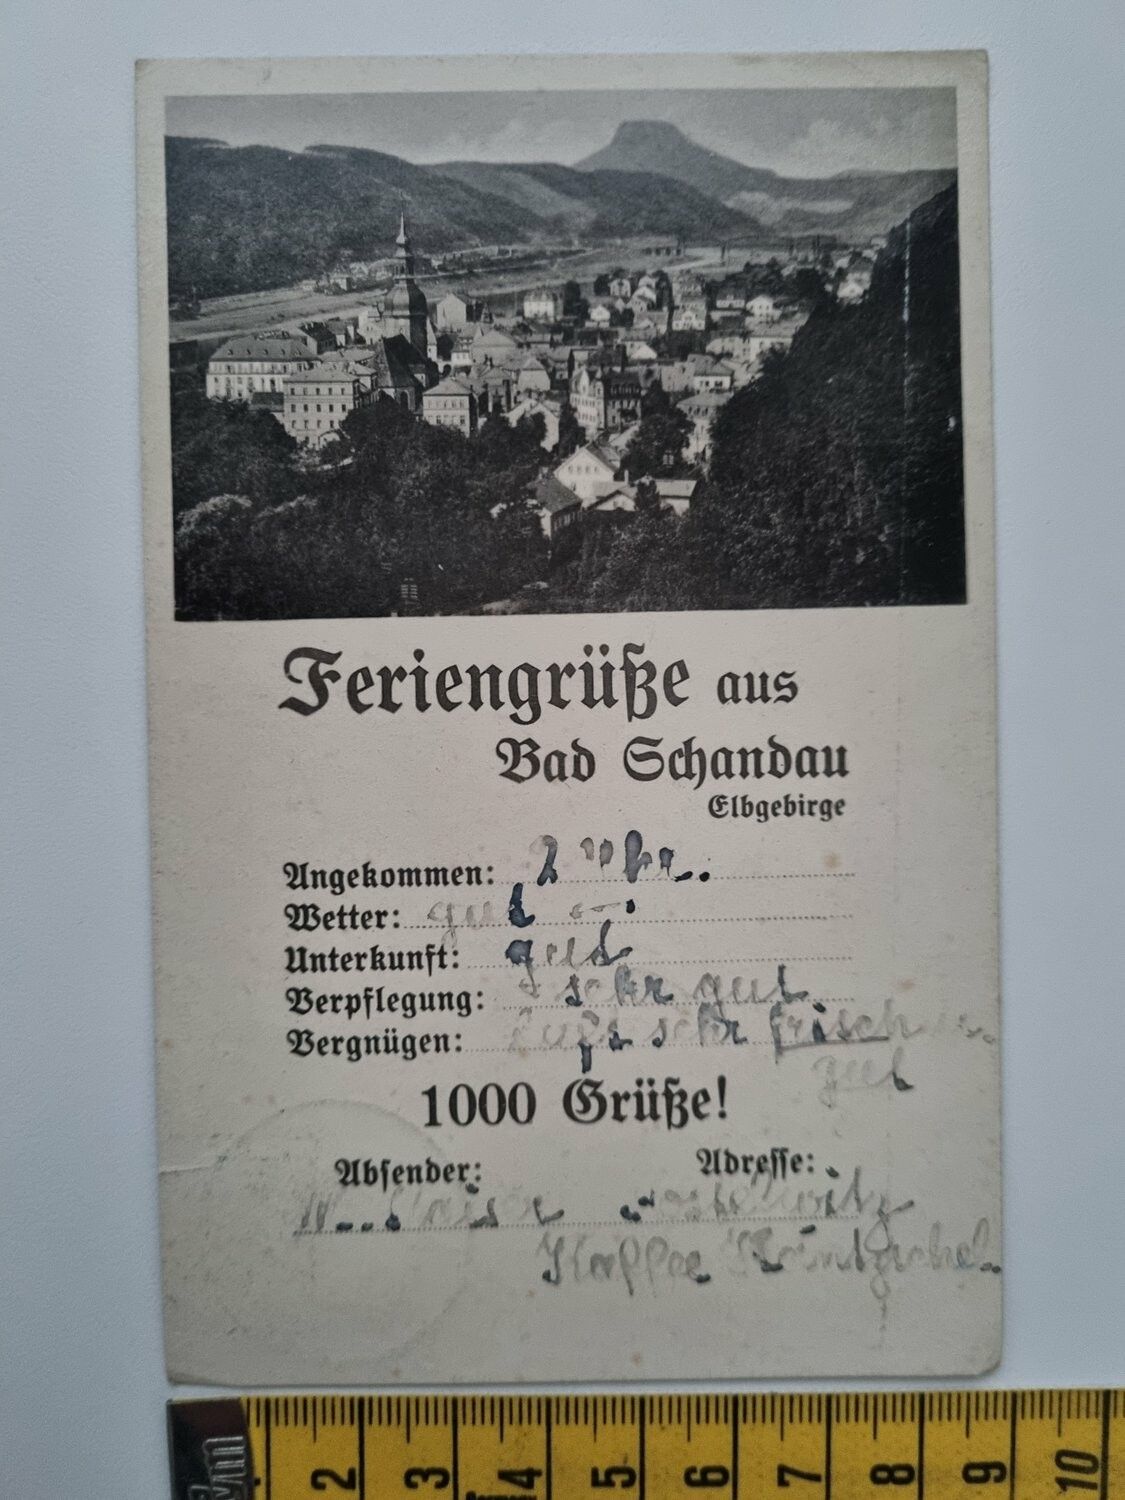 Feriengrüße aus
Bad Schandau
Elbgebirge
Angekommen: 2 Uhr.
Wetter: gut
Unterkunft: gut
Verpflegung: sehr gut
Vergnügen: sehr frisch
gut
1000 Grüße!
Absender: Adresse:
Kaffee
2 3 4 5 6 7 8 9 10